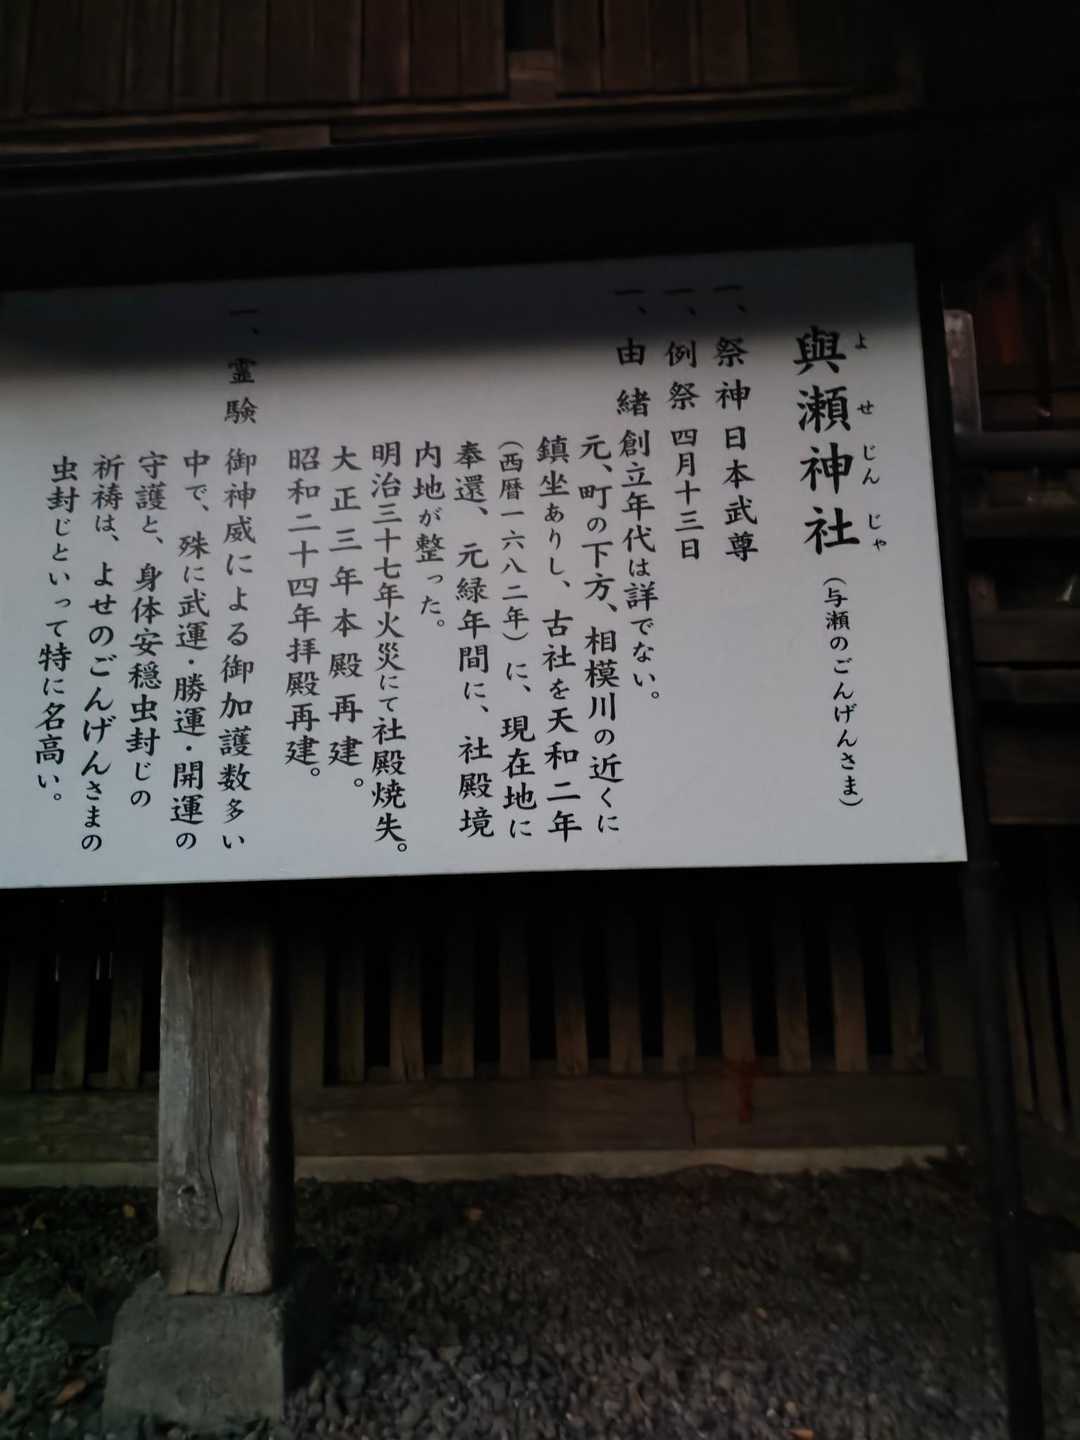 與瀬神社(与瀬のごんげんさま)
よせじんじゃ
一、祭神日本武尊
一、例祭四月十三日
一、由緒創立年代は詳でない。
元、町の下方、相模川の近くに
鎮坐ありし、古社を天和二年
(西暦一六八二年)に、現在地に
奉還、元緑年間に、社殿境
内地が整った。
明治三十七年火災にて社殿焼失。
大正三年本殿再建。
昭和二十四年拝殿再建。
一、霊験御神威による御加護数多い
中で、殊に武運・勝運・開運の
守護と、身体安穏虫封じの
祈祷は、よせのごんげんさまの
虫封じといって特に名高い。